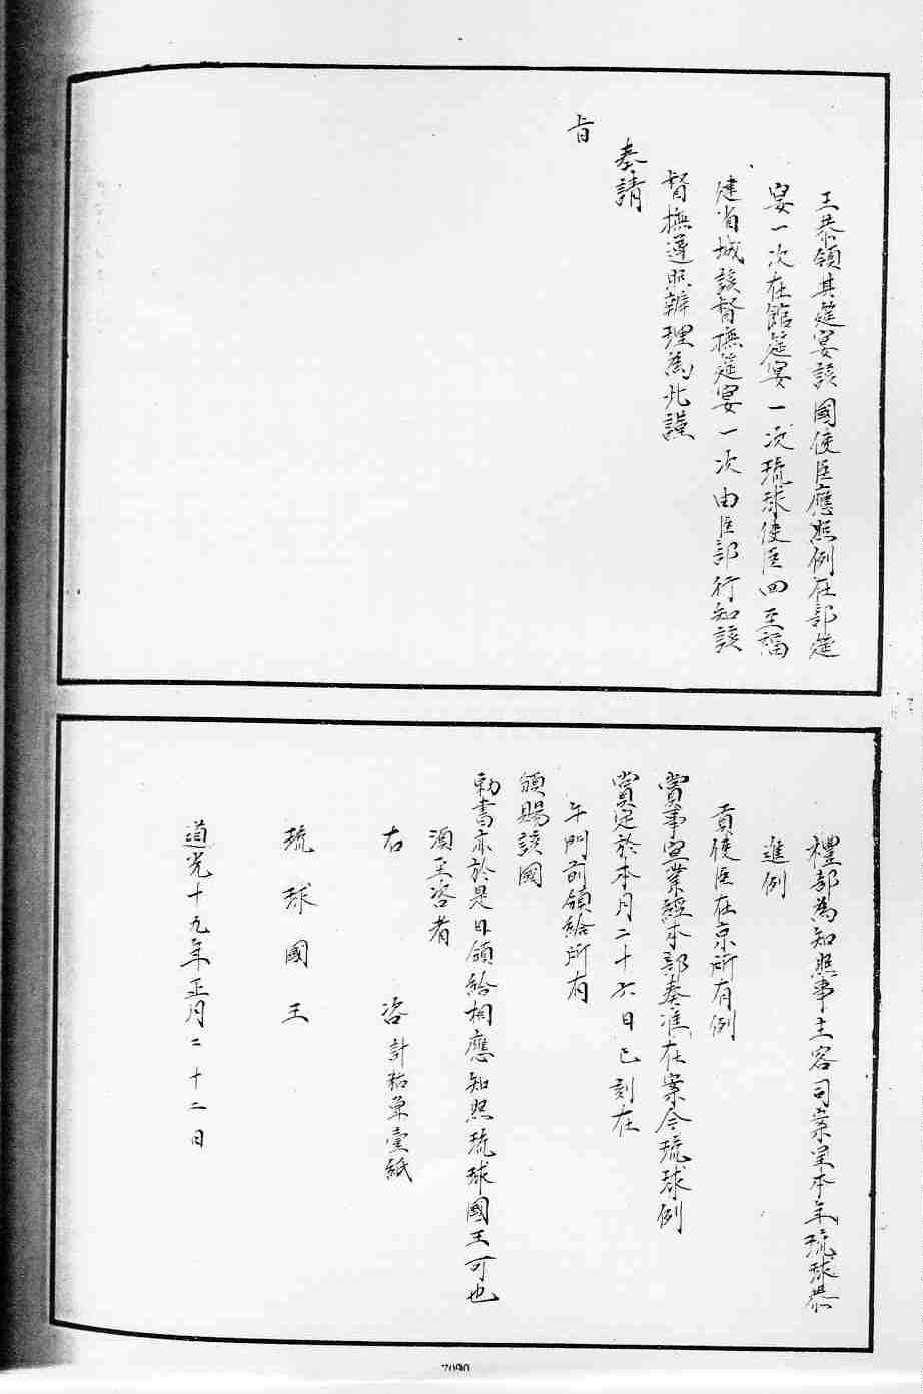 王恭領其筵宴該國使臣應照例在部筵
宴一次在館筵宴一次琉球使臣回至福
建省城該督撫筵宴一次由臣部行知該
督撫遵照辦理為此謹
奏請
旨
禮部為知照事主客司案呈本年琉球恭
進例
貢使臣在京所有例
賞事宜業經本部奏准在案今琉球例
賞定於本月二十六日巳刻在
午門前頒給所有
頒賜該國
勅書亦於是日頒給相應知照琉球國王可也
須至咨者
右咨計粘單壹紙
琉球國王
道光十九年正月二十二日
7090